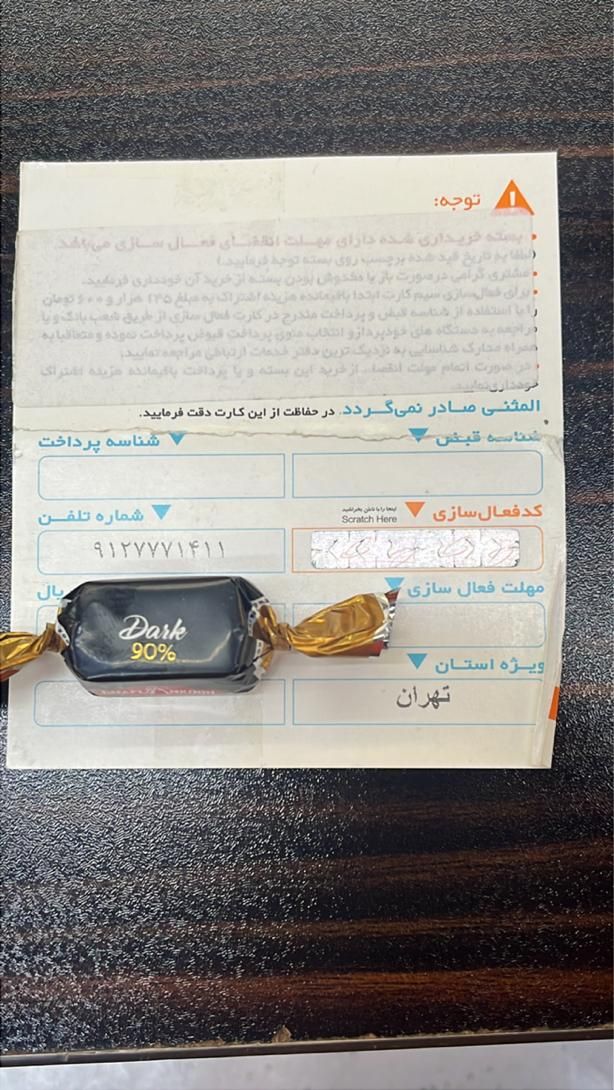 توجه:
بسته خریداری شده دارای مهلت انقضای فعال سازی می‌باشد
(لطفا به تاریخ قید شده برچسب روی بسته توجه فرمایید.)
مشتری گرامی درصورت باز یا مخدوش بودن بسته از خرید آن خودداری فرمایید.
برای فعال‌سازی سیم کارت ابتدا باقیمانده هزینه اشتراک به مبلغ ۱۳۵ هزار و ۶۰۰ تومان
را با استفاده از شناسه قبض و پرداخت مندرج در کارت فعال سازی از طریق شعب بانک و یا
مراجعه به دستگاه های خودپرداز و انتخاب منوی پرداخت قبوض پرداخت نموده و متعاقبا به
همراه مدارک شناسایی به نزدیک ترین دفتر خدمات ارتباطی مراجعه نمایید.
در صورت اتمام مهلت انقضا، از خرید این بسته و یا پرداخت باقیمانده هزینه اشتراک
خودداری نمایید.
المثنی صادر نمی‌گردد. در حفاظت از این کارت دقت فرمایید.
شناسه قبض شناسه پرداخت
کدفعال‌سازی اینجا را با ناخن بخراشید شماره تلفن
Scratch Here
۹۱۲۷۷۷۱۴۱۱
مهلت فعال سازی ریال
Dark
90%
ویژه استان
تهران